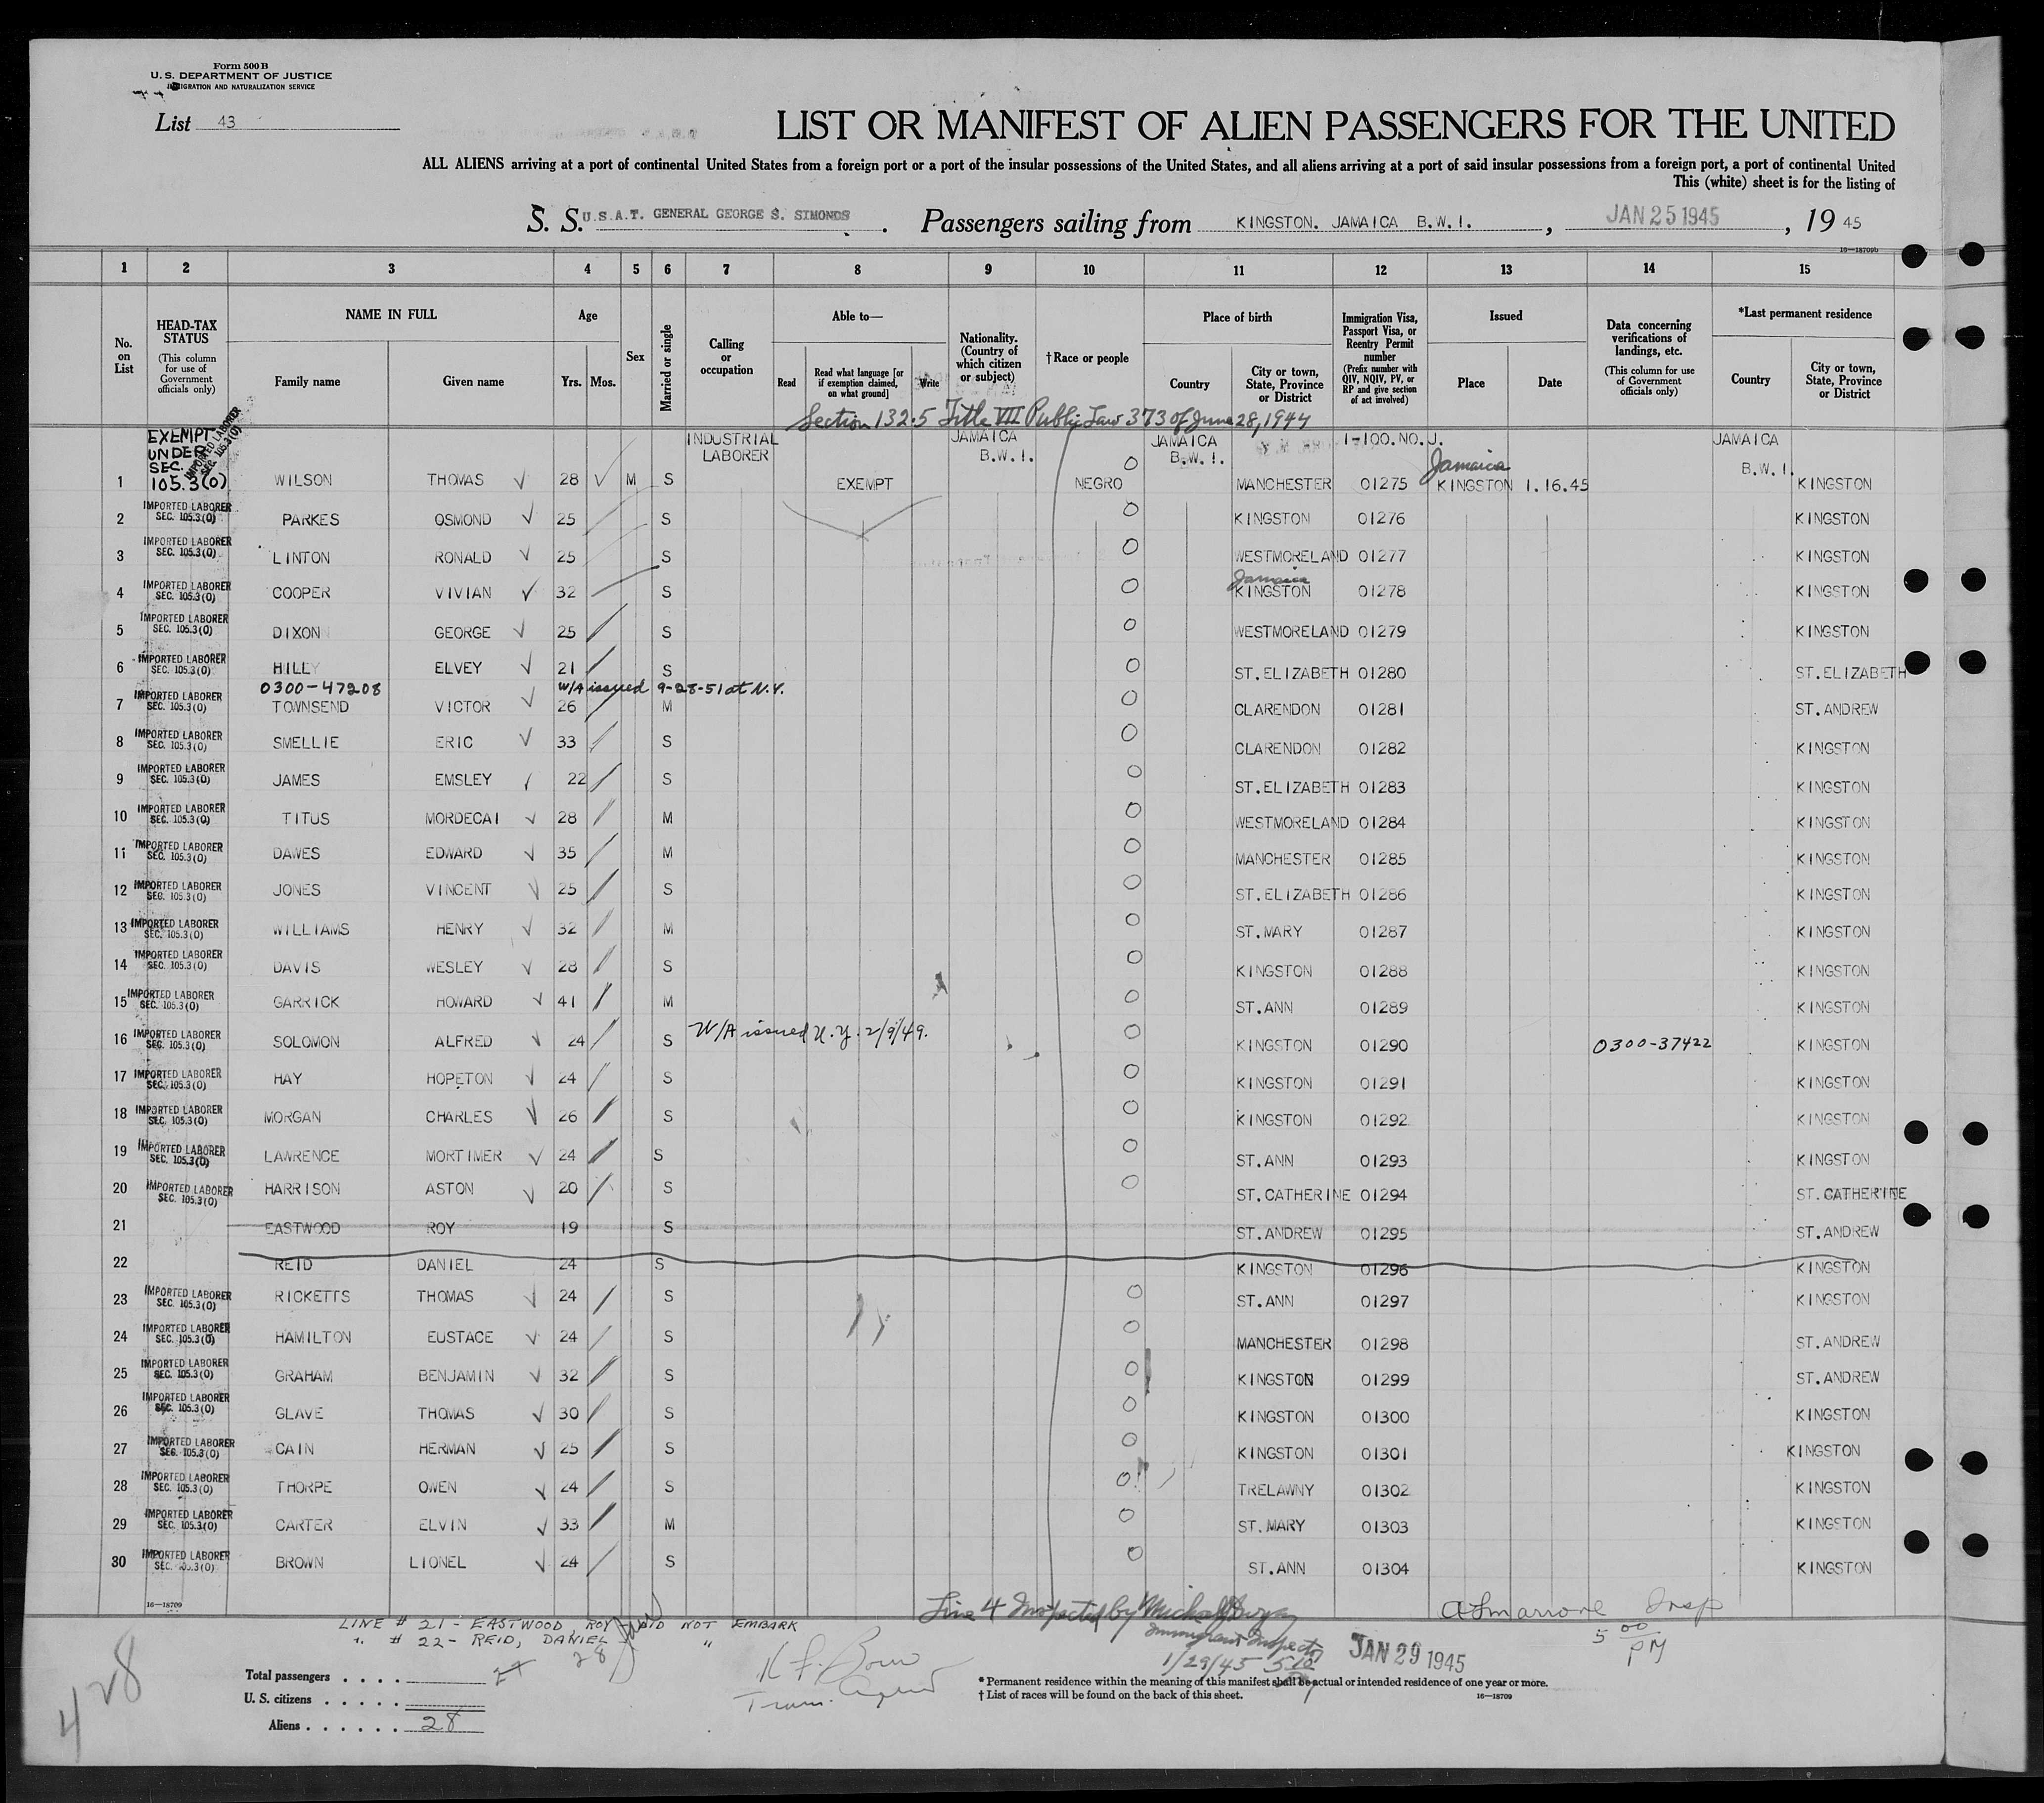 Form 500 B
U. S. DEPARTMENT OF JUSTICE
IMMIGRATION AND NATURALIZATION SERVICE
List 43
LIST OR MANIFEST OF ALIEN PASSENGERS FOR THE UNITED
ALL ALIENS arriving at a port of continental United States from a foreign port or a port of the insular possessions of the United States, and all aliens arriving at a port of said insular possessions from a foreign port, a port of continental United
This (white) sheet is for the listing of
S. S. U.S.A.T. GENERAL GEORGE S. SIMONDS. Passengers sailing from KINGSTON. JAMAICA B.W.I., JAN 25 1945, 19 45
16—18709b
1 2 3 4 5 6 7 8 9 10 11 12 13 14 15
No. on List
HEAD-TAX STATUS (This column for use of Government officials only)
NAME IN FULL Family name Given name
Age Yrs. Mos.
Sex
Married or single
Calling or occupation
Able to— Read Read what language [or if exemption claimed, on what ground] Write
Nationality. (Country of which citizen or subject)
†Race or people
Place of birth Country City or town, State, Province or District
Immigration Visa, Passport Visa, or Reentry Permit number (Prefix number with QIV, NQIV, PV, or RP and give section of act involved)
Issued Place Date
Data concerning verifications of landings, etc. (This column for use of Government officials only)
*Last permanent residence Country City or town, State, Province or District
Section 132.5 Title VII Public Law 373 of June 28, 1944
EXEMPT UNDER SEC. 105.3(0) IMPORTED LABORER SEC. 105.3(0)
INDUSTRIAL LABORER JAMAICA B.W.I. JAMAICA B.W.I. 1-100.NO.J. Jamaica JAMAICA B.W.I.
1 WILSON THOMAS 28 M S EXEMPT NEGRO MANCHESTER 01275 KINGSTON 1.16.45 KINGSTON
2 IMPORTED LABORER SEC. 105.3(0) PARKES OSMOND 25 S KINGSTON 01276 KINGSTON
3 IMPORTED LABORER SEC. 105.3(0) LINTON RONALD 25 S WESTMORELAND 01277 KINGSTON
Jamaica
4 IMPORTED LABORER SEC. 105.3(0) COOPER VIVIAN 32 S KINGSTON 01278 KINGSTON
5 IMPORTED LABORER SEC. 105.3(0) DIXON GEORGE 25 S WESTMORELAND 01279 KINGSTON
6 IMPORTED LABORER SEC. 105.3(0) HILLY ELVEY 21 S ST.ELIZABETH 01280 ST.ELIZABETH
0300-47208 W/A issued 9-28-51 at N.Y.
7 IMPORTED LABORER SEC. 105.3(0) TOWNSEND VICTOR 26 M CLARENDON 01281 ST.ANDREW
8 IMPORTED LABORER SEC. 105.3(0) SMELLIE ERIC 33 S CLARENDON 01282 KINGSTON
9 IMPORTED LABORER SEC. 105.3(0) JAMES EMSLEY 22 S ST.ELIZABETH 01283 KINGSTON
10 IMPORTED LABORER SEC. 105.3(0) TITUS MORDECAI 28 M WESTMORELAND 01284 KINGSTON
11 IMPORTED LABORER SEC. 105.3(0) DAWES EDWARD 35 M MANCHESTER 01285 KINGSTON
12 IMPORTED LABORER SEC. 105.3(0) JONES VINCENT 25 S ST.ELIZABETH 01286 KINGSTON
13 IMPORTED LABORER SEC. 105.3(0) WILLIAMS HENRY 32 M ST.MARY 01287 KINGSTON
14 IMPORTED LABORER SEC. 105.3(0) DAVIS WESLEY 28 S KINGSTON 01288 KINGSTON
15 IMPORTED LABORER SEC. 105.3(0) GARRICK HOWARD 41 M ST.ANN 01289 KINGSTON
16 IMPORTED LABORER SEC. 105.3(0) SOLOMON ALFRED 24 S W/A issued N.Y. 2/9/49. KINGSTON 01290 0300-37422 KINGSTON
17 IMPORTED LABORER SEC. 105.3(0) HAY HOPETON 24 S KINGSTON 01291 KINGSTON
18 IMPORTED LABORER SEC. 105.3(0) MORGAN CHARLES 26 S KINGSTON 01292 KINGSTON
19 IMPORTED LABORER SEC. 105.3(0) LAWRENCE MORTIMER 24 S ST.ANN 01293 KINGSTON
20 IMPORTED LABORER SEC. 105.3(0) HARRISON ASTON 20 S ST.CATHERINE 01294 ST.CATHERINE
21 EASTWOOD ROY 19 S ST.ANDREW 01295 ST.ANDREW
22 REID DANIEL 24 S KINGSTON 01296 KINGSTON
23 IMPORTED LABORER SEC. 105.3(0) RICKETTS THOMAS 24 S ST.ANN 01297 KINGSTON
24 IMPORTED LABORER SEC. 105.3(0) HAMILTON EUSTACE 24 S MANCHESTER 01298 ST.ANDREW
25 IMPORTED LABORER SEC. 105.3(0) GRAHAM BENJAMIN 32 S KINGSTON 01299 ST.ANDREW
26 IMPORTED LABORER SEC. 105.3(0) GLAVE THOMAS 30 S KINGSTON 01300 KINGSTON
27 IMPORTED LABORER SEC. 105.3(0) CAIN HERMAN 25 S KINGSTON 01301 KINGSTON
28 IMPORTED LABORER SEC. 105.3(0) THORPE OWEN 24 S TRELAWNY 01302 KINGSTON
29 IMPORTED LABORER SEC. 105.3(0) CARTER ELVIN 33 M ST.MARY 01303 KINGSTON
30 IMPORTED LABORER SEC. 105.3(0) BROWN LIONEL 24 S ST.ANN 01304 KINGSTON
16—18709
LINE # 21 - EASTWOOD, ROY DID NOT EMBARK
" # 22 - REID, DANIEL "
28
Line 4 Inspected by
Immigrant Inspector
1/29/45
JAN 29 1945
Insp
5 00 PM
Total passengers
U. S. citizens
Aliens 28
4 28
* Permanent residence within the meaning of this manifest shall be actual or intended residence of one year or more.
† List of races will be found on the back of this sheet. 16—18709